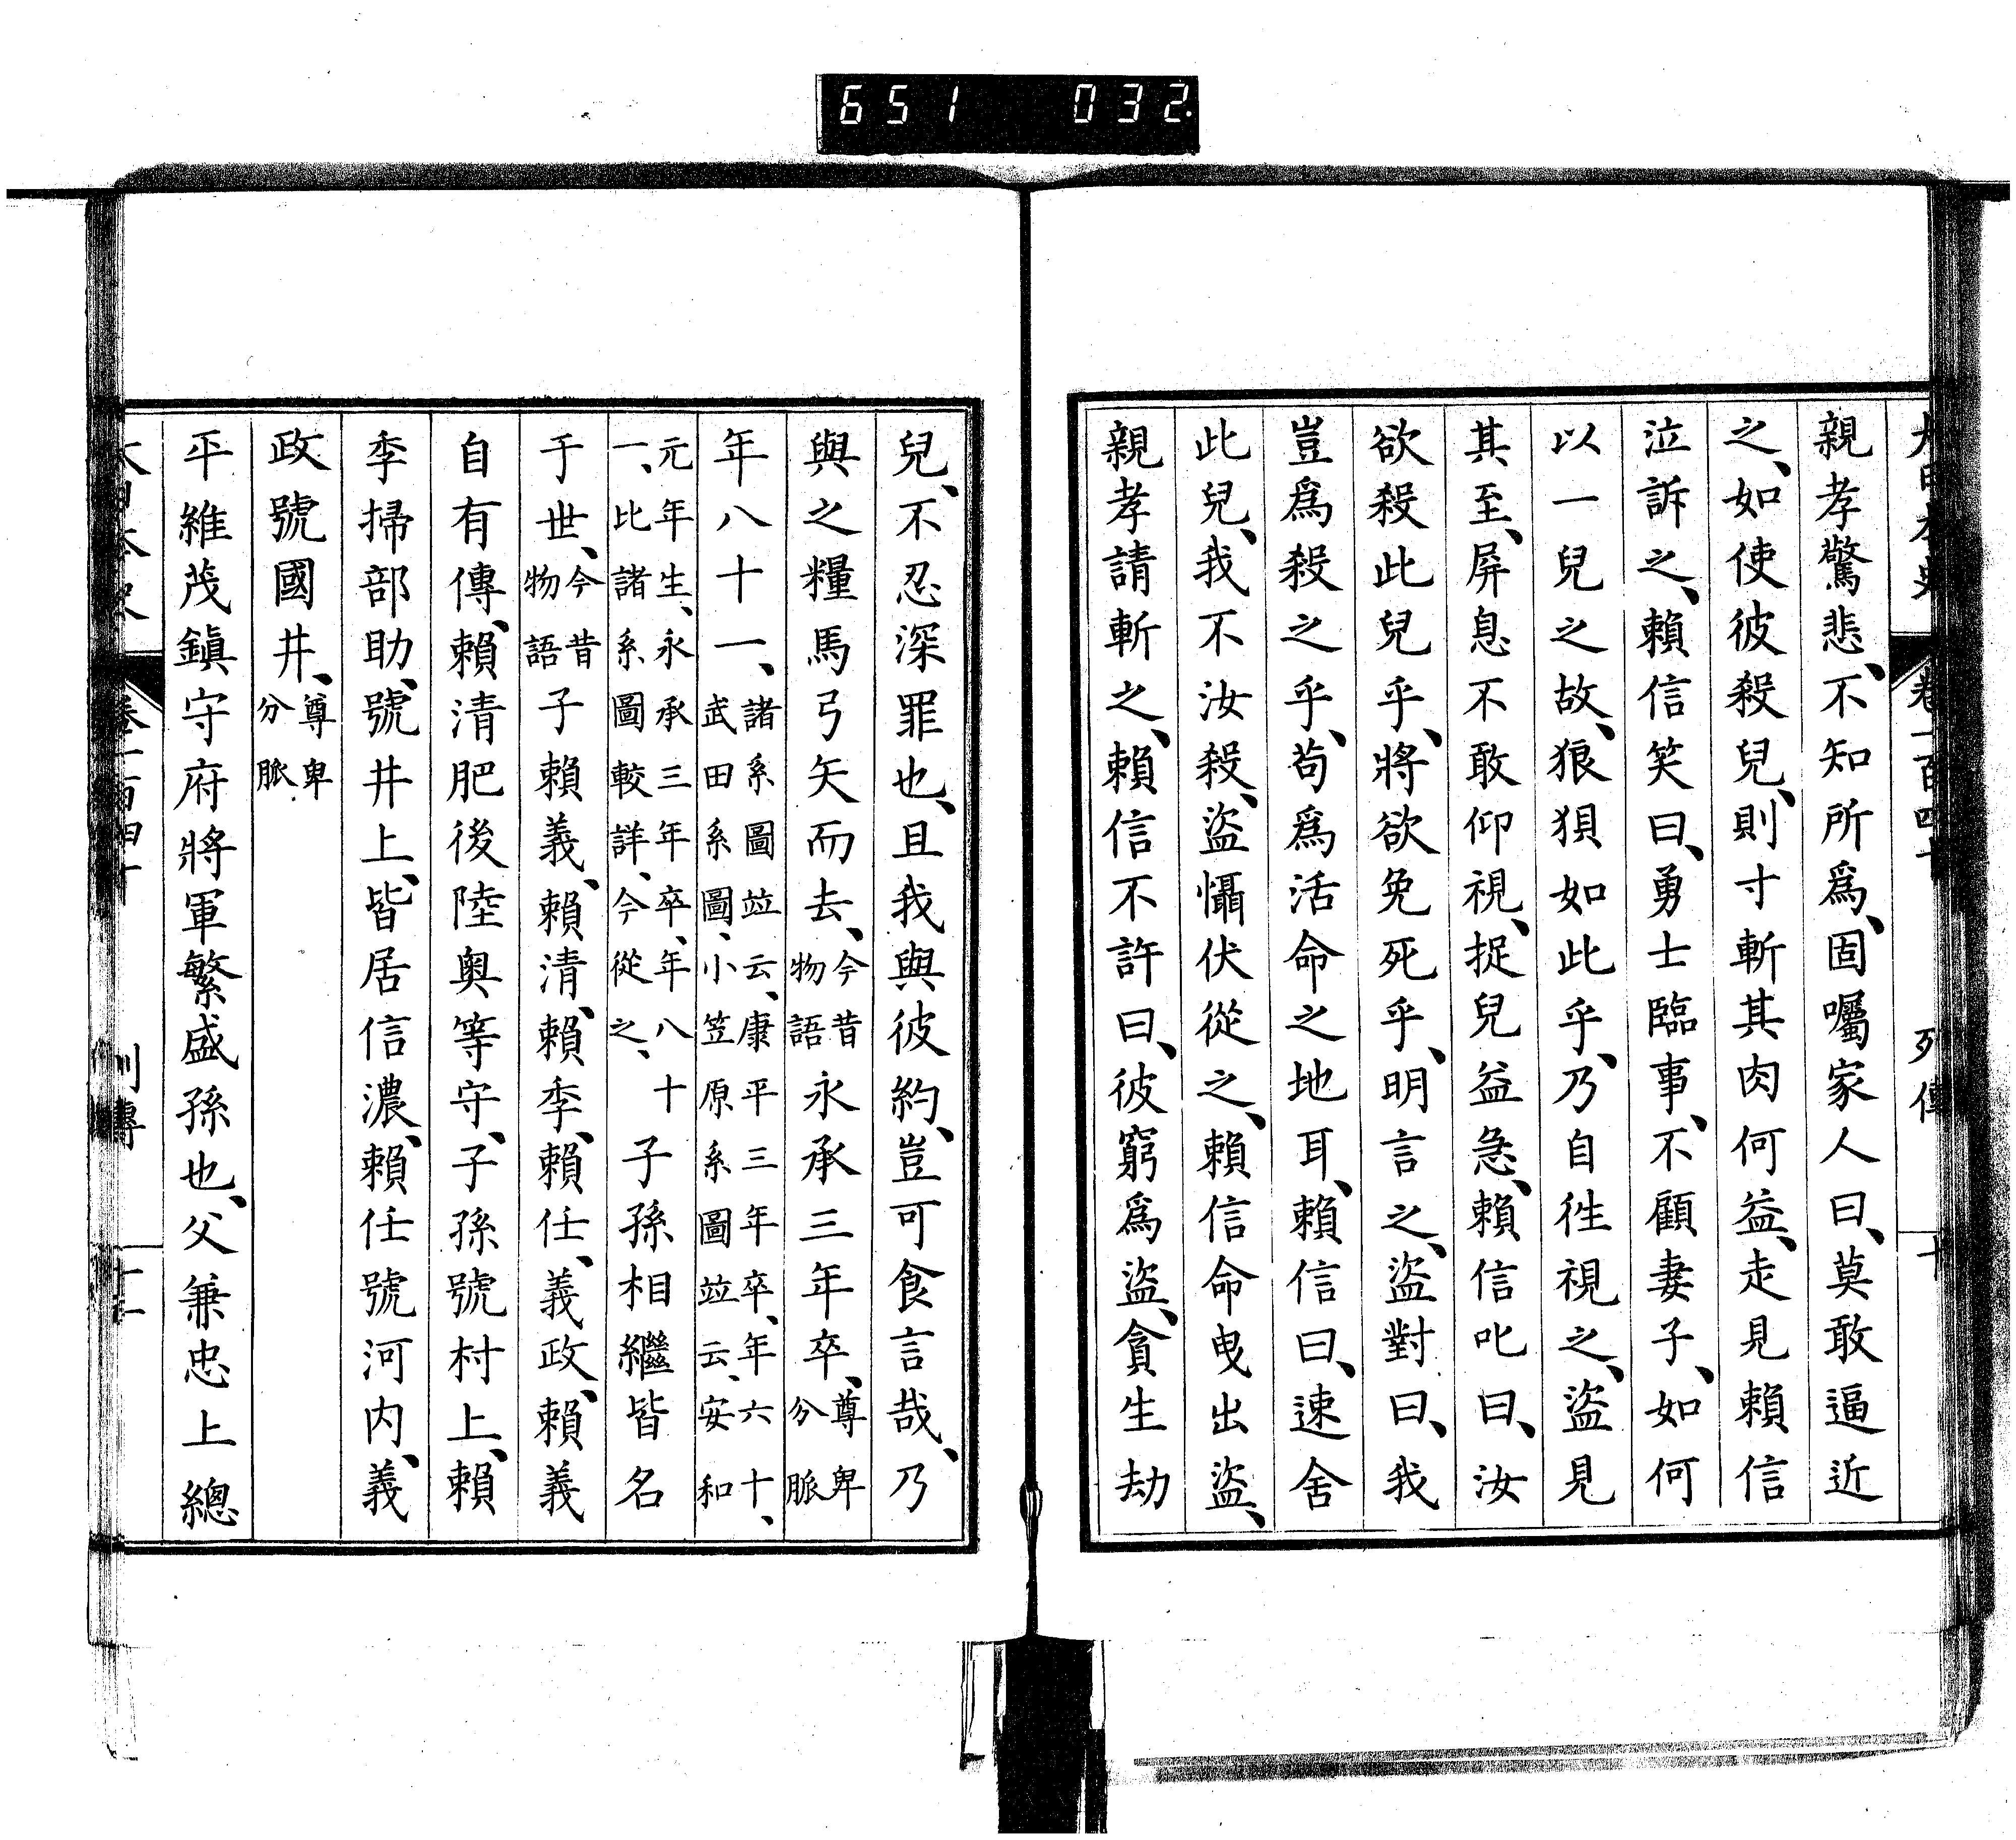 651 032
大日本史 卷一百四十 列傳 十
親孝驚悲、不知所爲、固囑家人曰、莫敢逼近
之、如使彼殺兒、則寸斬其肉何益、走見賴信
泣訴之、賴信笑曰、勇士臨事、不顧妻子、如何
以一兒之故、狼狽如此乎、乃自徃視之、盜見
其至、屏息不敢仰視、捉兒益急、賴信叱曰、汝
欲殺此兒乎、將欲免死乎、明言之、盜對曰、我
豈爲殺之乎、苟爲活命之地耳、賴信曰、速舍
此兒、我不汝殺、盜懾伏從之、賴信命曳出盜、
親孝請斬之、賴信不許曰、彼窮爲盜、貪生劫
兒、不忍深罪也、且我與彼約、豈可食言哉、乃
與之糧馬弓矢而去、今昔物語永承三年卒、尊卑分脈
年八十一、諸系圖竝云、康平三年卒、年六十、武田系圖、小笠原系圖竝云、安和
元年生、永承三年卒、年八十一、比諸系圖較詳、今從之、子孫相繼皆名
于世、今昔物語子賴義、賴清、賴季、賴任、義政、賴義
自有傳、賴清肥後陸奧等守、子孫號村上、賴
季掃部助、號井上、皆居信濃、賴任號河内、義
政號國井、尊卑分脈
平維茂鎭守府將軍繁盛孫也、父兼忠上總
大日本史 卷一百四十 列傳 十一